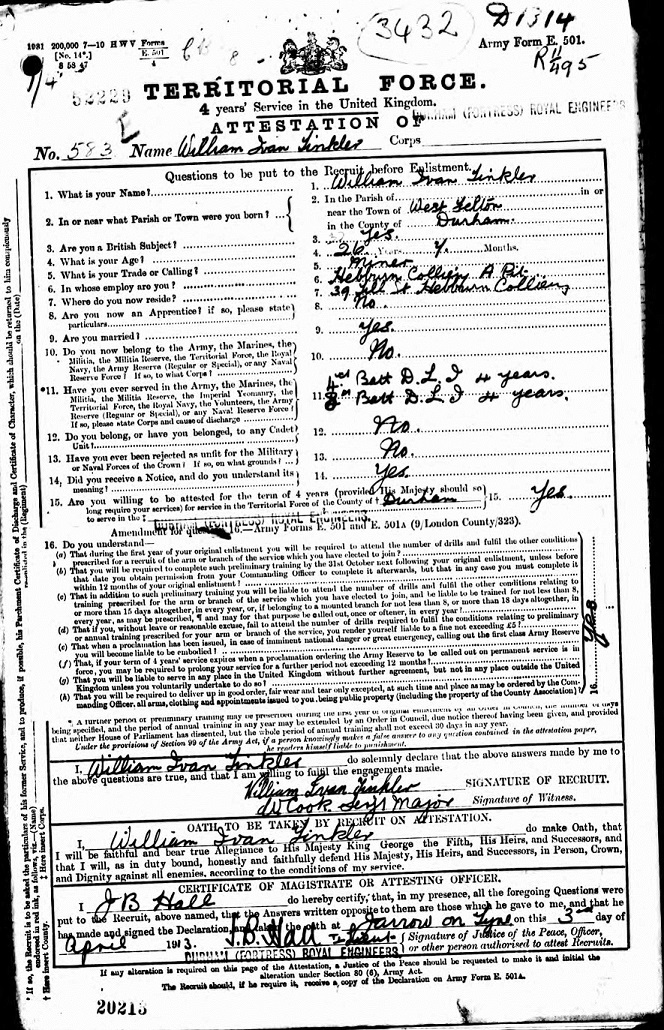 3432
D1314
1091 200,000 7—10 H W V Forms
E. 501
4
[No. 14*.]
8 58 47
Army Form E. 501.
R11/495
52229
TERRITORIAL FORCE.
4 years' Service in the United Kingdom.
ATTESTATION OF
DURHAM (FORTRESS) ROYAL ENGINEERS
No. 583 Name William Ivan Tinkler Corps
Questions to be put to the Recruit before Enlistment.
1. What is your Name? 1. William Ivan Tinkler
2. In or near what Parish or Town were you born? 2. In the Parish of in or
near the Town of West Pelton
in the County of Durham.
3. Are you a British Subject? 3. Yes.
4. What is your Age? 4. 26 Years 7. Months.
5. What is your Trade or Calling? 5. Miner
6. In whose employ are you? 6. Hebburn Colliery A Pit.
7. Where do you now reside? 7. 39 St Hebburn Colliery
8. Are you now an Apprentice? if so, please state particulars 8. No.
9. Are you married? 9. Yes.
10. Do you now belong to the Army, the Marines, the
Militia, the Militia Reserve, the Territorial Force, the Royal
Navy, the Army Reserve (Regular or Special), or any Naval
Reserve Force? If so, to what Corps? 10. No.
*11. Have you ever served in the Army, the Marines, the
Militia, the Militia Reserve, the Imperial Yeomanry, the
Territorial Force, the Royal Navy, the Volunteers, the Army
Reserve (Regular or Special), or any Naval Reserve Force?
If so, please state Corps and cause of discharge 11. Batt D.L.I 4 years.
8th Batt D.L.I 4 years.
12. Do you belong, or have you belonged, to any Cadet
Unit? 12. No.
13. Have you ever been rejected as unfit for the Military
or Naval Forces of the Crown? If so, on what grounds? 13. No.
14. Did you receive a Notice, and do you understand its
meaning? 14. Yes.
15. Are you willing to be attested for the term of 4 years (provided His Majesty should so
long require your services) for service in the Territorial Force of the County of † Durham
to serve in the ‡ DURHAM (FORTRESS) ROYAL ENGINEERS 15. Yes.
Amendment for question 10.—Army Forms E. 501 and E. 501A (9/London County/323).
16. Do you understand—
(a) That during the first year of your original enlistment you will be required to attend the number of drills and fulfil the other conditions
prescribed for a recruit of the arm or branch of the service which you have elected to join?
(b) That you will be required to complete such preliminary training by the 31st October next following your original enlistment, unless before
that date you obtain permission from your Commanding Officer to complete it afterwards, but that in any case you must complete it
within 12 months of your original enlistment?
(c) That in addition to such preliminary training you will be liable to attend the number of drills and fulfil the other conditions relating to
training prescribed for the arm or branch of the service which you elected to join, and be liable to be trained for not less than 8,
or more than 15 days altogether, in every year, or, if belonging to a mounted branch for not less than 8, or more than 18 days altogether, in
every year, as may be prescribed, ¶ and may for that purpose be called out, once or oftener, in every year?
(d) That if you, without leave or reasonable excuse, fail to attend the number of drills required to fulfil the conditions relating to preliminary
or annual training prescribed for your arm or branch of the service, you render yourself liable to a fine not exceeding £5?
(e) That when a proclamation has been issued, in case of imminent national danger or great emergency, calling out the first class Army Reserve
you will become liable to be embodied?
(f) That, if your term of 4 years' service expires when a proclamation ordering the Army Reserve to be called out on permanent service is in
force, you may be required to prolong your service for a further period not exceeding 12 months?
(g) That you will be liable to serve in any place in the United Kingdom without further agreement, but not in any place outside the United
Kingdom unless you voluntarily undertake to do so?
(h) That you will be required to deliver up in good order, fair wear and tear only excepted, at such time and place as may be ordered by the Commanding Officer, all arms, clothing and appointments issued to you, being public property (including the property of the County Association)?
16. Yes
*. A further period of preliminary training may be prescribed during the first year of original enlistment by an Order in Council, the number of days
being specified, and the period of annual training in any year may be extended by an Order in Council, due notice thereof having been given, and provided
that neither House of Parliament has dissented, but the whole period of annual training shall not exceed 30 days in any year.
Under the provisions of Section 99 of the Army Act, if a person knowingly makes a false answer to any question contained in the attestation paper,
he renders himself liable to punishment.
I, William Ivan Tinkler do solemnly declare that the above answers made by me to
the above questions are true, and that I am willing to fulfil the engagements made.
William Ivan Tinkler SIGNATURE OF RECRUIT.
W Cook Sergt Major Signature of Witness.
OATH TO BE TAKEN BY RECRUIT ON ATTESTATION.
I, William Ivan Tinkler do make Oath, that
I will be faithful and bear true Allegiance to His Majesty King George the Fifth, His Heirs, and Successors, and
that I will, as in duty bound, honestly and faithfully defend His Majesty, His Heirs, and Successors, in Person, Crown,
and Dignity against all enemies, according to the conditions of my service.
CERTIFICATE OF MAGISTRATE OR ATTESTING OFFICER.
I, J B Hall do hereby certify, that, in my presence, all the foregoing Questions were
put to the Recruit, above named, that the Answers written opposite to them are those which he gave to me, and that he
has made and signed the Declaration, and taken the oath at Jarrow on Tyne on this 3rd day of
April 1913. J. B. Hall Lieut Signature of Justice of the Peace, Officer,
or other person authorised to attest Recruits.
DURHAM (FORTRESS) ROYAL ENGINEERS
If any alteration is required on this page of the Attestation, a Justice of the Peace should be requested to make it and initial the
alteration under Section 80 (6), Army Act.
The Recruit should, if he require it, receive a copy of the Declaration on Army Form E. 501A.
20213
* If so, the Recruit is to be asked the particulars of his former service, and to produce, if possible, his Parchment Certificate of Discharge and Certificate of Character, which should be returned to him conspicuously
endorsed in red ink, as follows, viz.—(Name) re-enlisted in the (Regiment) on the (Date)
† Here insert County. ‡ Here insert Corps.